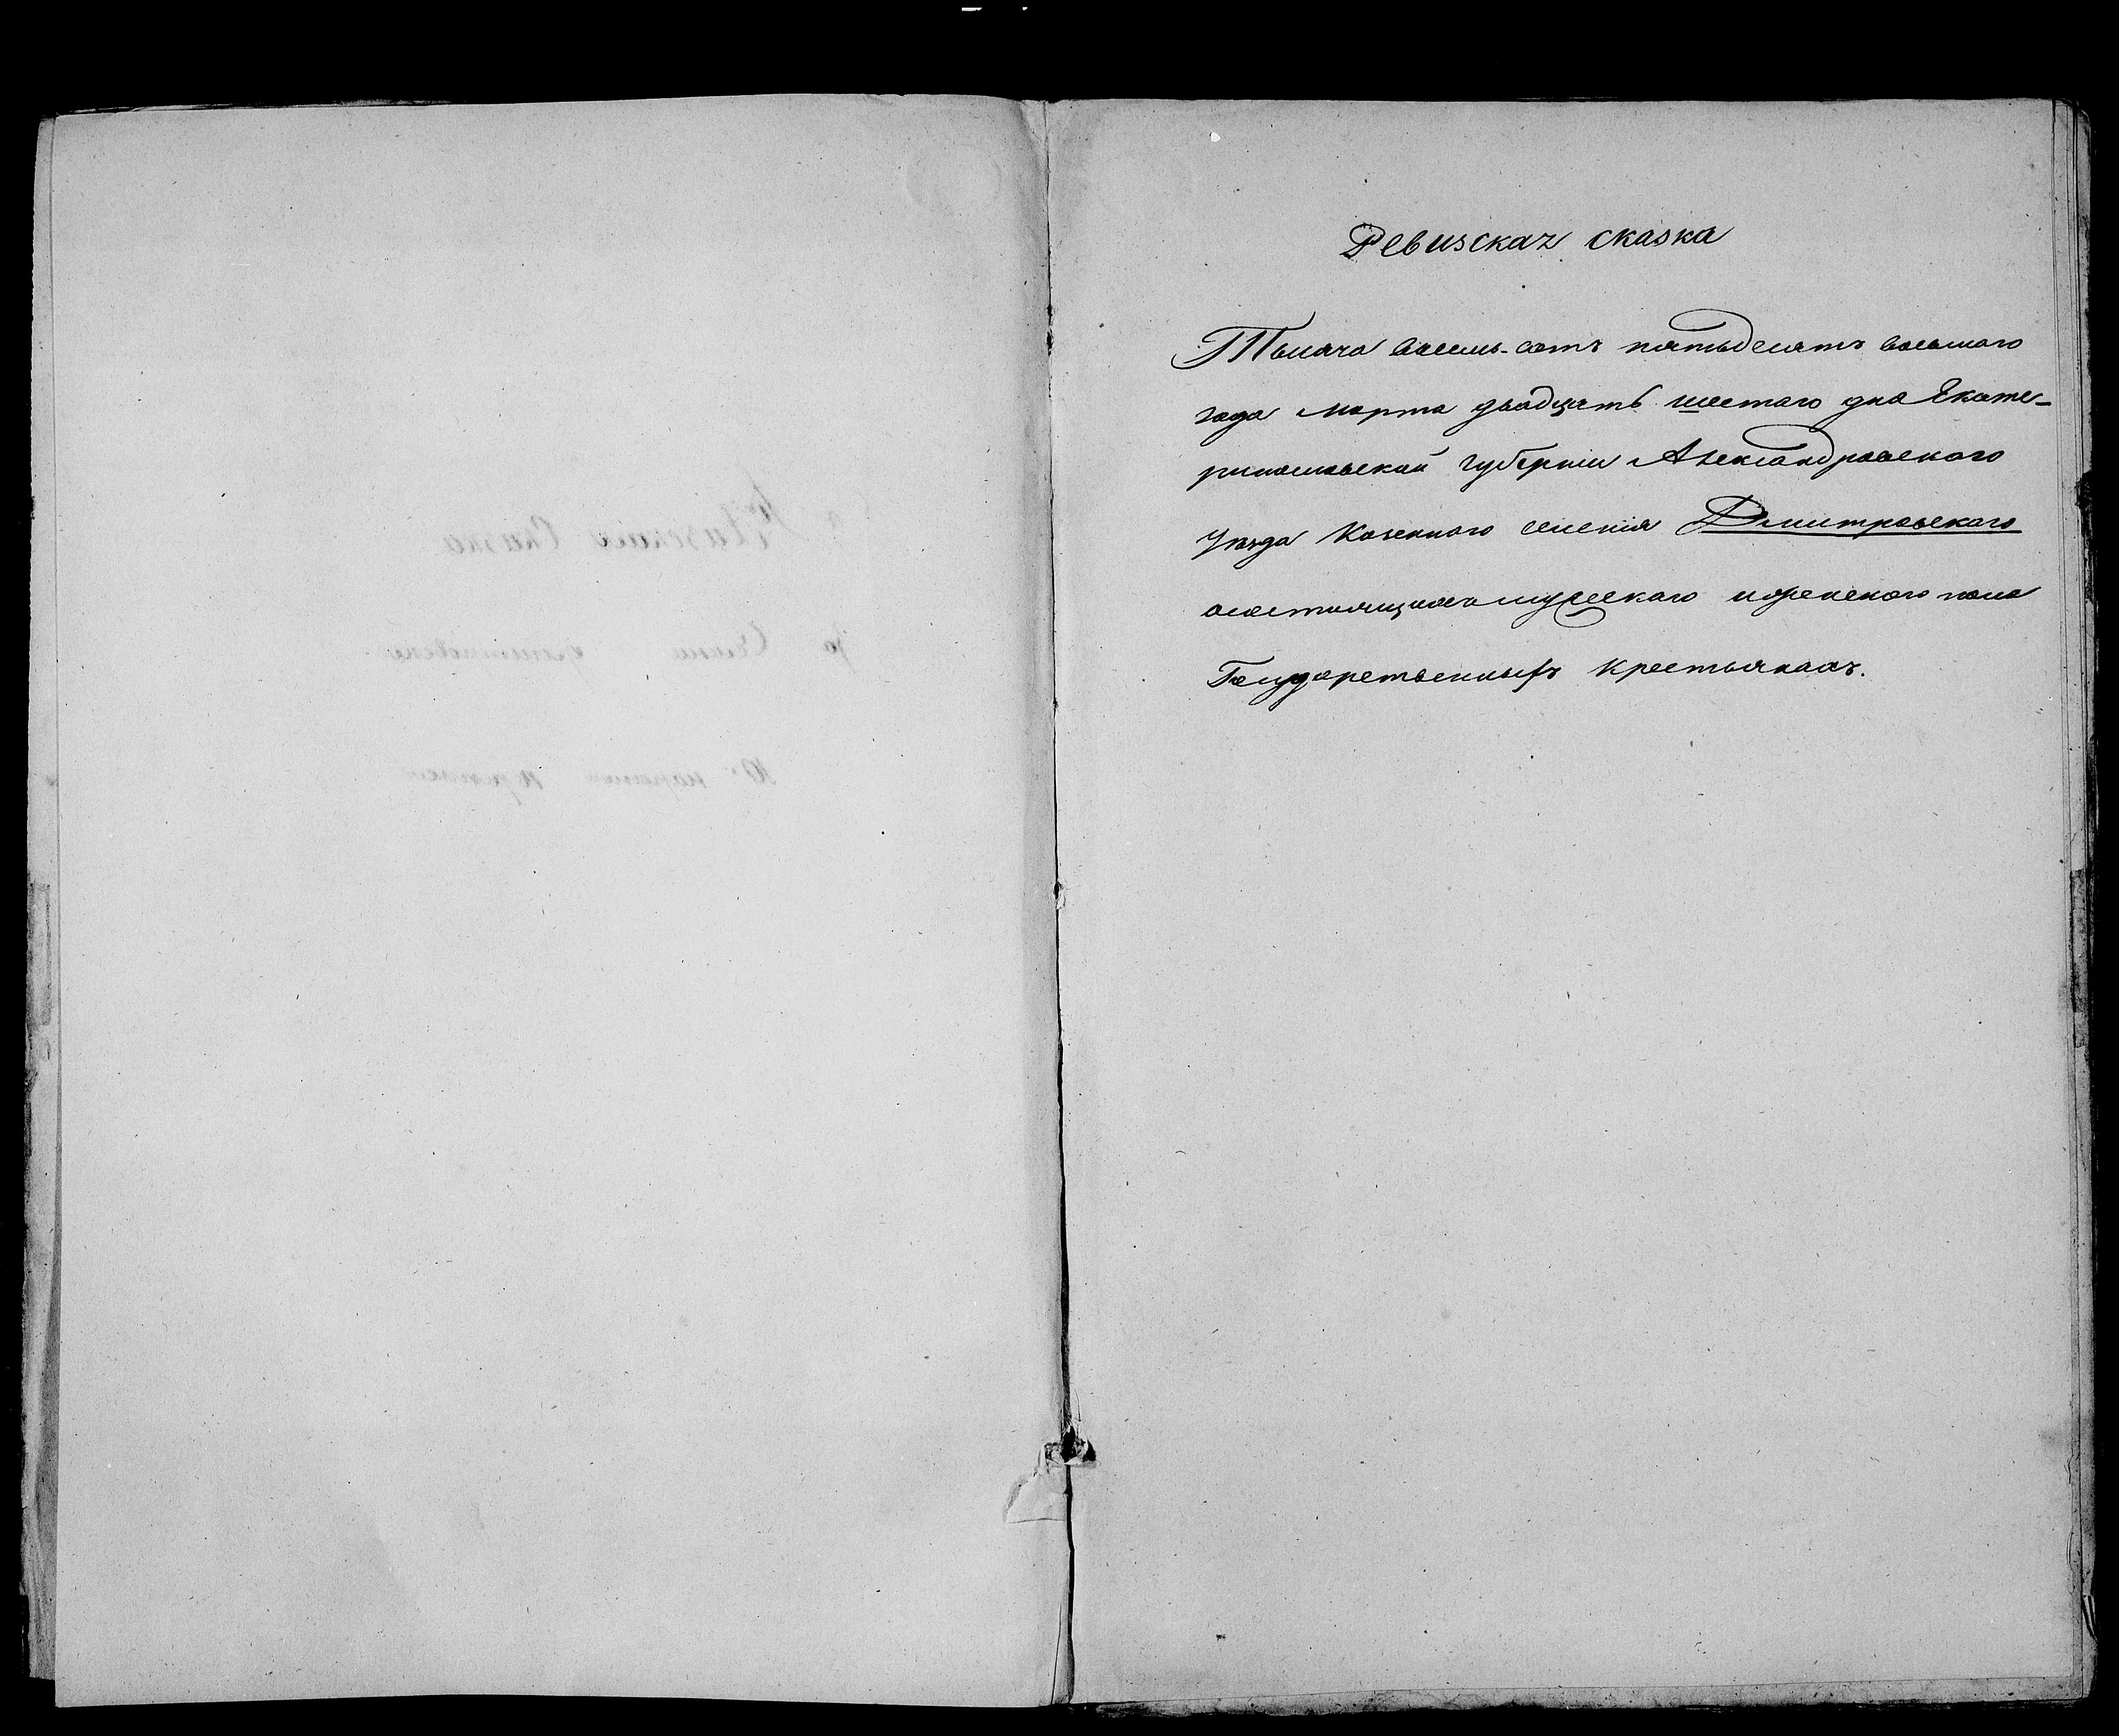 Ревизская сказка
Тысяча восемь-сотъ пятьдесятъ восьмаго
года марта двадцать шестаго дна Екате-
ринославской губерніи Александровскаго
Уѣзда Казеннаго селенія Дмитровскаго
о состоящихъ мужескаго и женскаго пола
Государственныхъ крестьянахъ.